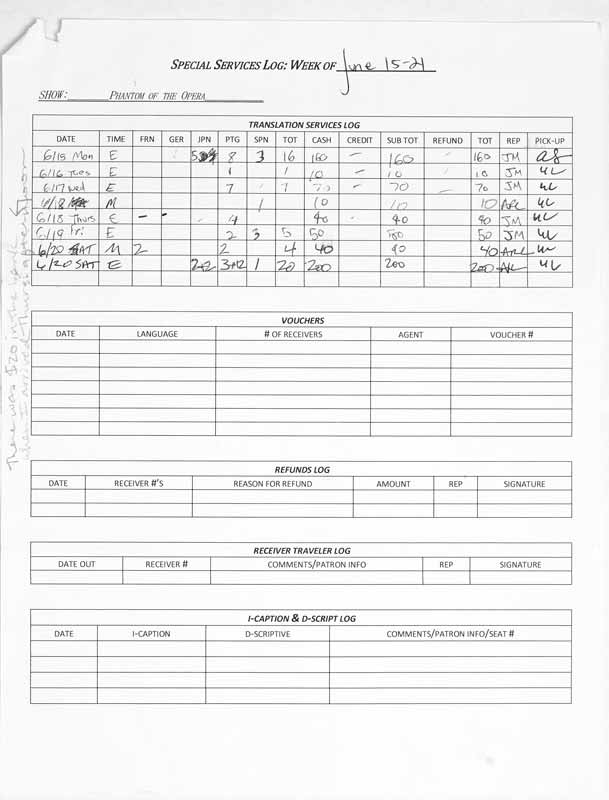 SPECIAL SERVICES LOG: WEEK OF June 15-21
SHOW: PHANTOM OF THE OPERA
TRANSLATION SERVICES LOG
DATE TIME FRN GER JPN PTG SPN TOT CASH CREDIT SUB TOT REFUND TOT REP PICK-UP
6/15 Mon E 5 8 3 16 160 – 160 160 JM
6/16 Tues E 1 1 10 – 10 10 JM
6/17 Wed E 7 7 70 – 70 70 JM
6/18 M 1 10 10 10
6/18 Thurs E – - 4 40 40 40 JM
6/19 Fri E 2 3 5 50 50 JM
6/20 SAT M 2 2 4 40 40
6/20 SAT E 1 20 200 200 200
There was $20 in the
when I arrived Thurs
VOUCHERS
DATE LANGUAGE # OF RECEIVERS AGENT VOUCHER #
REFUNDS LOG
DATE RECEIVER #'S REASON FOR REFUND AMOUNT REP SIGNATURE
RECEIVER TRAVELER LOG
DATE OUT RECEIVER # COMMENTS/PATRON INFO REP SIGNATURE
I-CAPTION & D-SCRIPT LOG
DATE I-CAPTION D-SCRIPTIVE COMMENTS/PATRON INFO/SEAT #